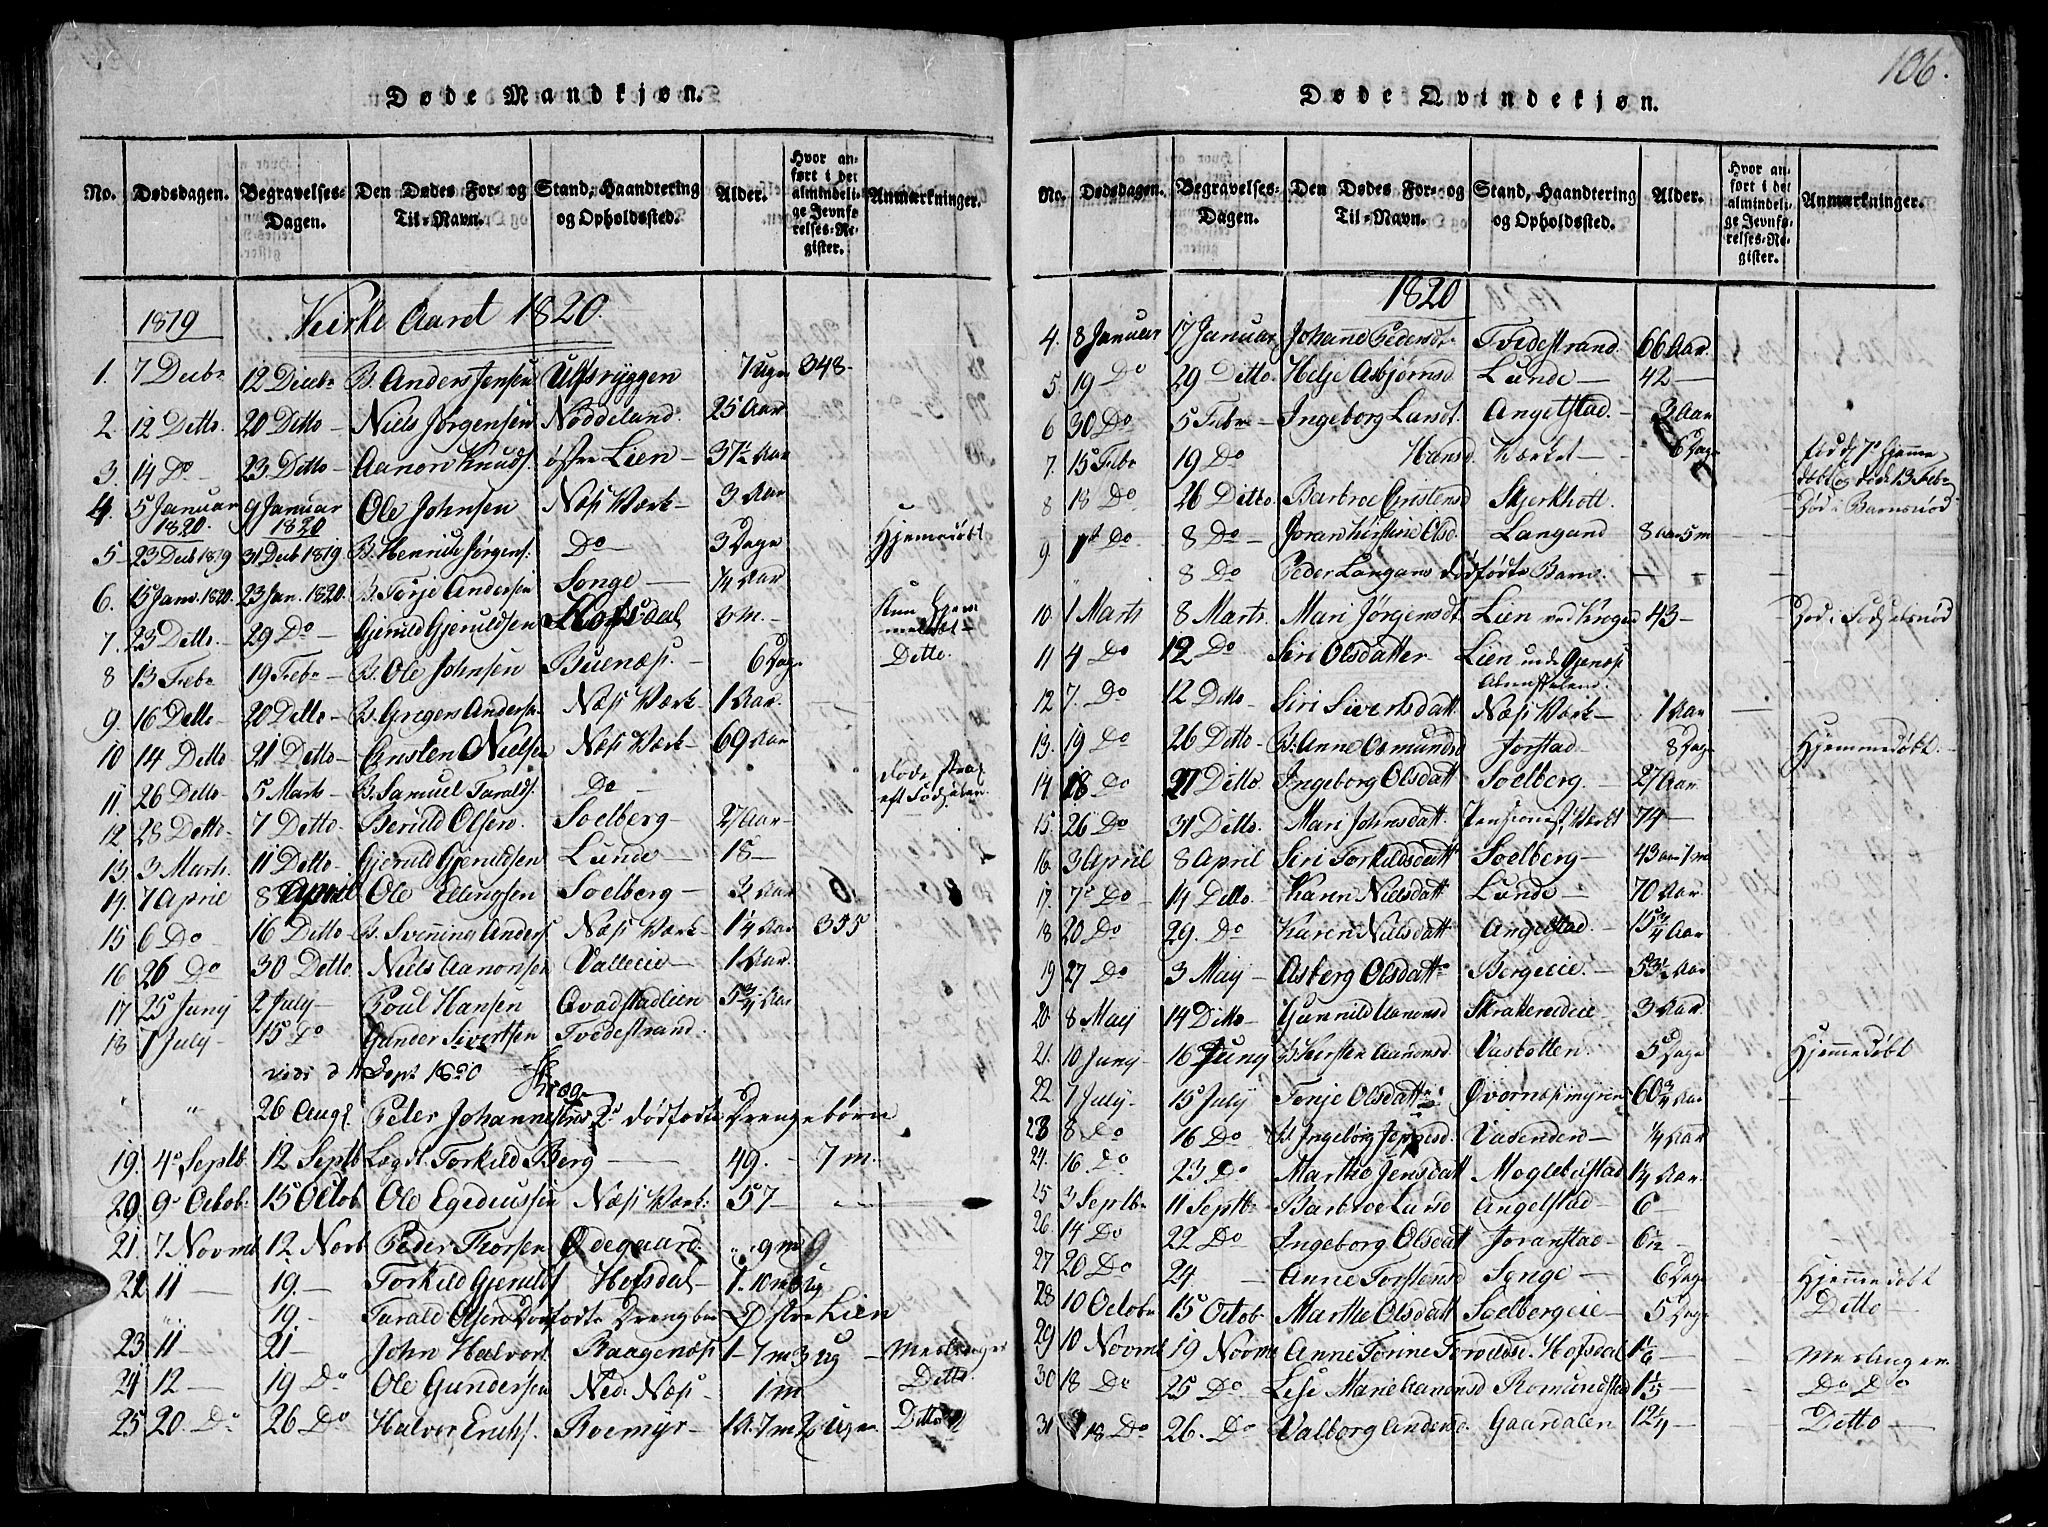 106.
Døde Mandkjøn.
No. Dødsdagen. Begravelses-Dagen. Den Dødes For- og Til-Navn. Stand, Haandtering og Opholdssted. Alder. Hvor anført i det almindelige Jevnførelses-Register. Anmærkninger.
1819 Kirke Aaret 1820.
1. 7 Decbr 12 Decbr B. Anders Jensen Ulfsryggen 7 Uger 348-
2. 12 Ditto. 20 Ditto- Niels Jørgensen Nøddeland. 25 Aar
3. 14 Do- 23 Ditto- Aanon Knuds. østre Lien- 37½ Aar
4. 5 Januar 1820. 9 Januar 1820 Ole Johnsen Næs Værk- 3 Aar
5- 23 Decb 1819 31 Decb 1819 B. Henrich Jørgens. Do- 3 Dage Hjemmedøbt
6. 15 Janv. 1820. 23 Jan. 1820. B. Torje Andersen Songe- ¼ Aar
7. 23 Ditto. 29 Do- Gjeruld Gjeruldsen Hofsdal 3 m.- Kun hjemmedøbt-
8 13 Febr 19 Febr B. Ole Johnsen Buenæs. 6 Dage Ditto.
9. 16 Ditto 20 Ditto- B. Gregers Anders. Næs Værk- 1 Aar.
10 14 Ditto 21 Ditto- Ansten Nielsen Næs Værk- 69 Aar
11. 26 Ditto- 5 Marts B. Samuel Taralds. Do- døde strax eft Fødselen.
12 28 Ditto- 7 Ditto. Beruld Olsen Soelberg- 27 Aar-
13. 3 Marts. 11 Ditto- Gjeruld Gjeruldsen Lunde- 18-
14. 7 April 8 April Ole Ellingsen Soelberg- 3 Aar 6.
15 6 Do- 16 Ditto- B. Svenning Anders Næs Værk- 1¼ Aar 355
16 26 Do 30 Ditto Niels Aanonsen Valleeie- 1 Aar.
17 25 Juny 2 July- Poul Hansen Qvadstadlien 5¾ Aar
18 1 July- 15 Do Gunder Sivertsen Tvedestrand.
vidi d 11 Sept 1820
" " 26 Augs. Peter Johannesens 2de dødfødte Drengebørn
19. 4de Septb 12 Septb Logst. Torkild Berg- 49.- 7 m.
29. 9de Octob. 15 Octob Ole Egedeussen Næs Værk. 57-
21. 7 Novmb 12 Novb Peder Thorsen Ødegaard " 9 m
22 11- 19.- Torkild Gjerulds Hofsdal-
19.- Tarald Olsen Dødfødte Drengbarn Østre Lien
23 11- 21- John Halvors. Kaagenæs 1- 7 m 3 Ug- Meslinger
24 12- 19 Do Ole Gundersen Ned. Næs- 1 m. Ditto.
25 20. Do 26 Do Halvor Erichs. Roemyr- 1 A. 7 m 2 Uger Ditto
Døde Qvindekjøn.
No. Dødsdagen. Begravelses-Dagen. Den Dødes For- og Til-Navn. Stand, Haandtering og Opholdssted. Alder. Hvor anført i det almindelige Jevnførelses-Register. Anmærkninger.
1820
4. 8 Januar 17 Januar Johanne Pedersdt. Tvedestrand. 66 Aar.
5. 19 Do 29 Ditto. Helje Asbjørnsd Lunde- 42-
6 30 Do 5 Febr- Ingeborg Lundt. Angelstad.- 3 Aar
7. 15 Febr 19 Do Hansd. Værket- 6 Dage født 7de hjemmedøbt og døde 13 Febr
8 18 Do 26 Ditto. Barbroe Cristensd Skjerkholt. Død i Barnsnød
9 1st Do 8 Do- Joran Kirstine Olsd. Langand 8 Aar 5 m-
" 8 Do Peder Langans dødfødte Barn.
10. 1 Marts 8 Marts. Mari Jørgensdt. Lien ved Kroged 43- Død i Fødselsnød
11 4 Do 12 Do Siri Olsdatter Lien und. Gjenæs Almstalem.
12 7. Do 12 Ditto- Siri Sivertsdatt Næs Værk- 1 Aar
13. 19 Do 26 Ditto- B. Anne Osmundsd Jorstad- 8 Dage Hjemmedøbt.
14 18 Do 27 Ditto. Ingeborg Olsdatt Soelberg.- 27 Aar.
15. 26 Do 31 Ditto. Mari Johnsdatt. Pensionist, Værket 74-
16. 3 April 8 April Siri Torkildsdatt Soelberg- 43 Aar 1 m
17. 7de Do 14 Ditto. Karen Nielsdatt. Lunde 70 Aar
18 20 Do 29. Do Karen Nielsdatt Angelstad. 15¾ Aar
19 27 Do 3 Maij Asberg Olsdattr Bergeeie.- 53½ Aar
20 8 Maij 14 Ditto- Gunnild Aanonsd Skatteredeie- 3 Aar.
21. 10 Juny- 16 Juny B. Kirsten Aanonsd. Vasbotten. 5 Dage Hjemmedøbt
22 1 July- 15 July Tonje Olsdattr Qvernæsmyren 60¾ Aar
23 8 Do 16 Do B. Ingebørg Jeppesd. Vasenden- ¼ Aar
24. 16. Do 23 Do Marthe Jensdatt Moglebustad 1¼ Aar.
25 3 Septbr 11 Septbr Barbroe Lund Angelstad 6-
26. 14 Do 22 Do- Ingeborg Olsdatt Joranstad-
27 20 Do 24- Anne Torstensd Songe- 6 Dage Hjemmedøbt
28 10 Octobr 15 Octob- Marthe Olsdatt Soelbergeie- 5 Dage Ditto-
29 10 Novmb 19 Novmb Anne Torine Torvildsd. Hofsdal Meslingen
30 18 Do 25 Do- Lise Marie Aanonsd Romundstad Do Do
31 18 Do 26. Do Valborg Andersd. Gaardalen 12¼- Ditto-